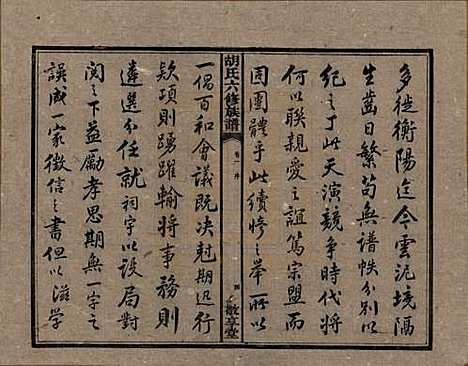 多徙衡陽迄今雲泥境隔
生齒日繁苟無譜帙分别以
紀之丁此天演競爭時代將
何以聯親愛之誼篤宗盟而
固團體乎此續修之舉所以
胡氏六修族譜
卷一 序
四
敬享堂
一倡百和會議既決剋期迅行
欵項則踴躍輸將事務則
遴選分任就祠宇以設局對
閲之下益勵孝思期無一字之
誤成一家徵信之書但以滋學